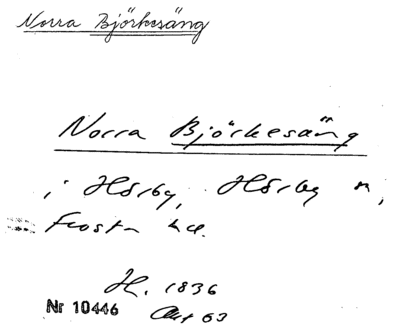 Norra Björkesäng
Norra Björkesäng
i Hörby, Hörby n,
Frosta hd.
H. 1836
Nr 10446 Akt 63